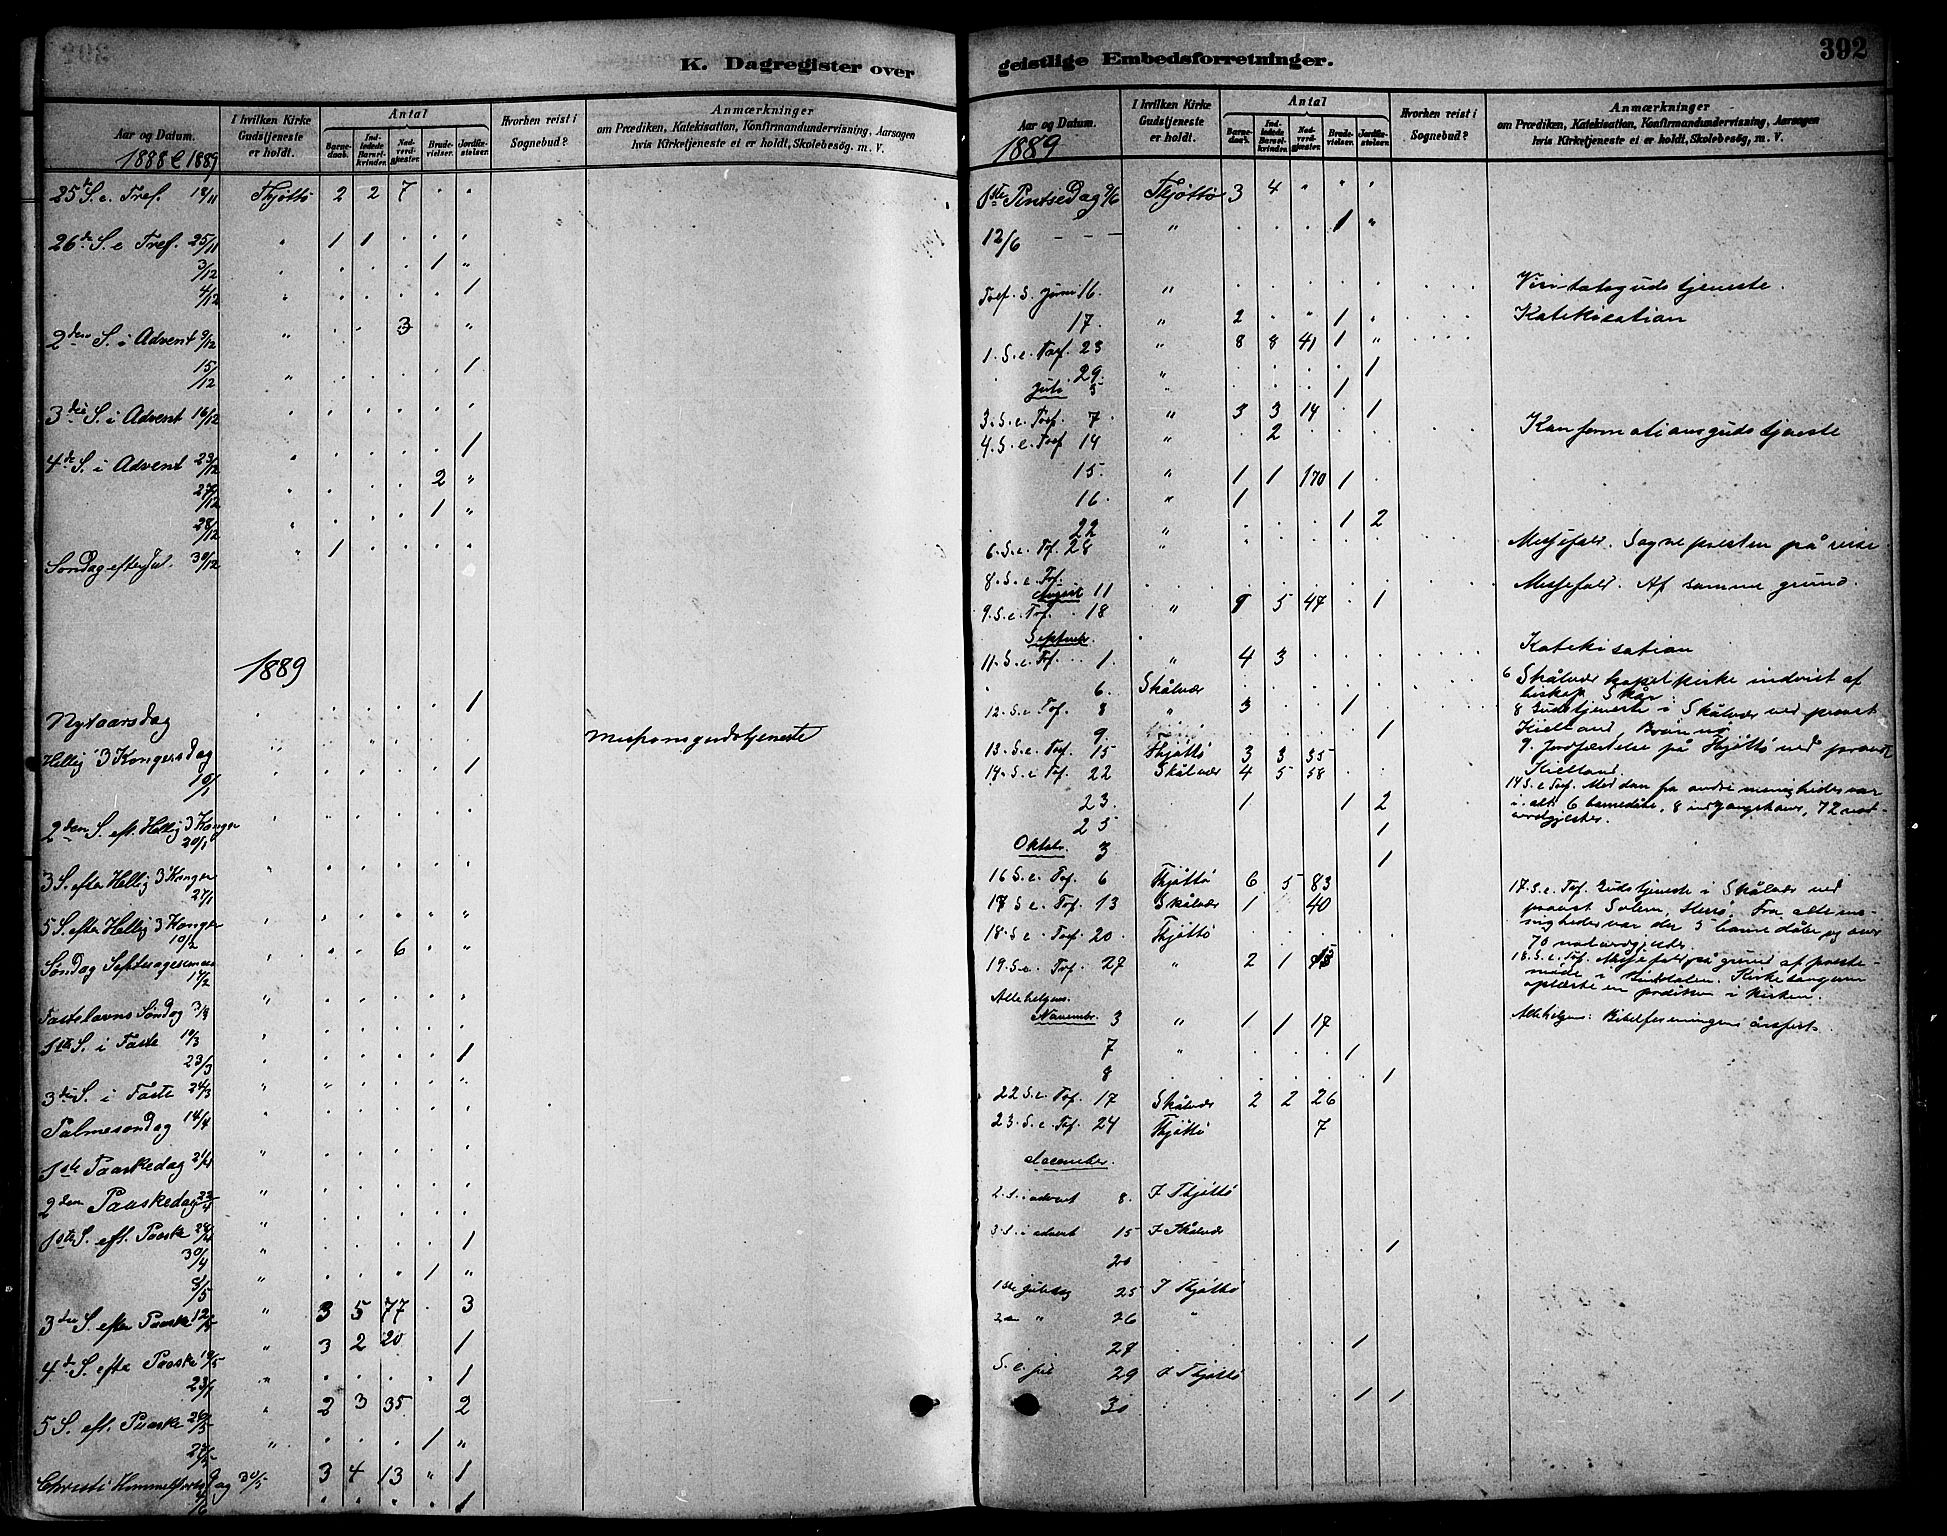 K. Dagregister over
Aar og Datum.
I hvilken Kirke Gudstjeneste er holdt.
Antal
Barnedaab.
Indledede Barselkvinder.
Nadverdgjæster.
Brudevielser.
Jordfæstelser.
Hvorhen reist i Sognebud?
Anmærkninger
om Prædiken, Katekisation, Konfirmandundervisning, Aarsagen
hvis Kirketjeneste ei er holdt, Skolebesøg. m. V.
1888 & 1889
25de S. e. Tref. 18/11 Thjøttø 2 2 7 " "
26de S. e Tref. 25/11 " 1 1 . . .
3/12 " . . . 1 "
4/12 " . . . . 1
2den S. i Advent 9/12 " . . 3 . "
15/12 " . . . . 1
3die S. i Advent 16/12 " . . . . .
4de S. i Advent 23/12 " . . . . 1
27/12 " . . . 2 "
28/12 " . . . 1 "
Søndag efter Jul. 30/12 " 1 . . . .
1889
Nytaarsdag " . . . . 1
Hellig 3 Kongersdag " . . " . . 
10/1 " . . . . 1
2den S. eft. Hellig 3 Konger 20/1
3 S. efter Hellig 3 Konger 27/1
5 S. efter Hellig 3 Konger 10/2
Søndag Septuagesima 17/2 " " " 6 " "
Fastelavns Søndag 3/3
1ste S. i Faste 10/3
23/3 " . . . . 1
3die S. i Faste 24/3
Palmesøndag 14/4
1ste Paaskedag 21/4
2den Paaskedag 22/4
1ste S. eft. Paaske 28/4
30/4 " . . . . 1
8/5 " . . . 1 "
3die S. efter Paaske 12/5 " 3 5 77 . 3
4de S. efter Paaske 19/5 " 3 2 20 . 1
23/5 " . . . . 1
5 S. eft. Paaske 26/5 " 2 3 35 . 2
27/5 " . . . 1 "
Christi Himmelfartsdag 30/5 3 4 13 " 1
4/6 " . . . 1
geistlige Embedsforretninger.
392
Aar og Datum.
I hvilken Kirke Gudstjeneste er holdt.
Antal
Barnedaab.
Indledede Barselkvinder.
Nadverdgjæster.
Brudevielser.
Jordfæstelser.
Hvorhen reist i Sognebud?
Anmærkninger
om Prædiken, Katekisation, Konfirmandundervisning, Aarsagen
hvis Kirketjeneste ei er holdt, Skolebesøg, m. V.
1889
1ste Pintsedag 9/6 Thjøttø 3 4 " " "
12/6 - - - " . . . 1 "
Tref. S. Juni 16. " . . . . . Visitatsgudstjeneste.
17. " 2 . " 1 " Katekisation
1. S. e. Tref. 23 " 8 8 41 1 "
29. " . . . . 1
Juli 5 " . . . 1
3. S. e. Tref. 7 " 3 3 14 . 1
4. S. e. Tref 14 " . 2 . . . Konfirmationsgudstjeneste
15. " 1 1 170 1 .
16. " 1
22 " . . . 1 2
6. S. e. Tref. 28 " . . . . . Messefald. Sognepresten på reise
8. S. e. Tref. August 11 . . . . . Messefald. Af samme grund.
9. S. e. Tref. 18 " 9 5 47 . 1
Septembr.
11. S. e. Tref. 1. " 4 3 . . . Katekisation
6. Skålvær . . . . . 6 Skålvær kapelkirke indviet af
biskop Skår
12. S. e. Tref. 8 " 3 . . 1 . 8 Gudstjeneste i Skålvær ved provst
Kielland, Brønnø
9. . . . . 1 9. Jordfæstelse på Thjøttø ved provst
Kielland.
13. S. e. Tref. 15 Thjøttø 3 3 35
14. S. e. Tref. 22 Skålvær 4 5 58 . . 14 S. e Tref. Med dem fra andre menigheder var
i alt 6 barnedåbe, 8 indgangskoner, 72 nat-
verdgjester.
23. 1 . . 1 2
25 . . . . 1
Oktobr. 3 . . . . 1
16 S. e. Tref. 6 Thjøttø 6 5 83
17 S. e. Tref. 13 Skålvær 1 40 17. S. e. Tref. Gudstjeneste i Skålvær ved
provst Solem, Herrø. Fra alle me-
nigheder var der 5 barnedåbe og over
70 natverdgjester.
18. S. e Tref. 20. Thjøttø 18. S. e. Tref. Messefald på grund af preste-
møde i Vinkelen. Kirkesangeren
oplæste en prædiken i kirken.
19. S. e. Tref. 27 " 2 1
Allehelgens.
Novembr. 3 " 1 1 17 Allehelgens: Bibelforeningens årsfest.
7 " . . . 1
8 . . . . 1
22 S. e. Tref. 17 Skålvær 2 2 26
23. S. e. Tref. 24 Thjøttø 7
December.
2. S. i advent 8. I Thjøttø
3 S. i advent 15 I Skålvær
20 . . . . 1
1ste juledag 25 I Thjøttø
2den " 26 "
28 . . . 1
S. e. jul 29 I Thjøttø
30 . . . 1 1
Responsgudstjeneste